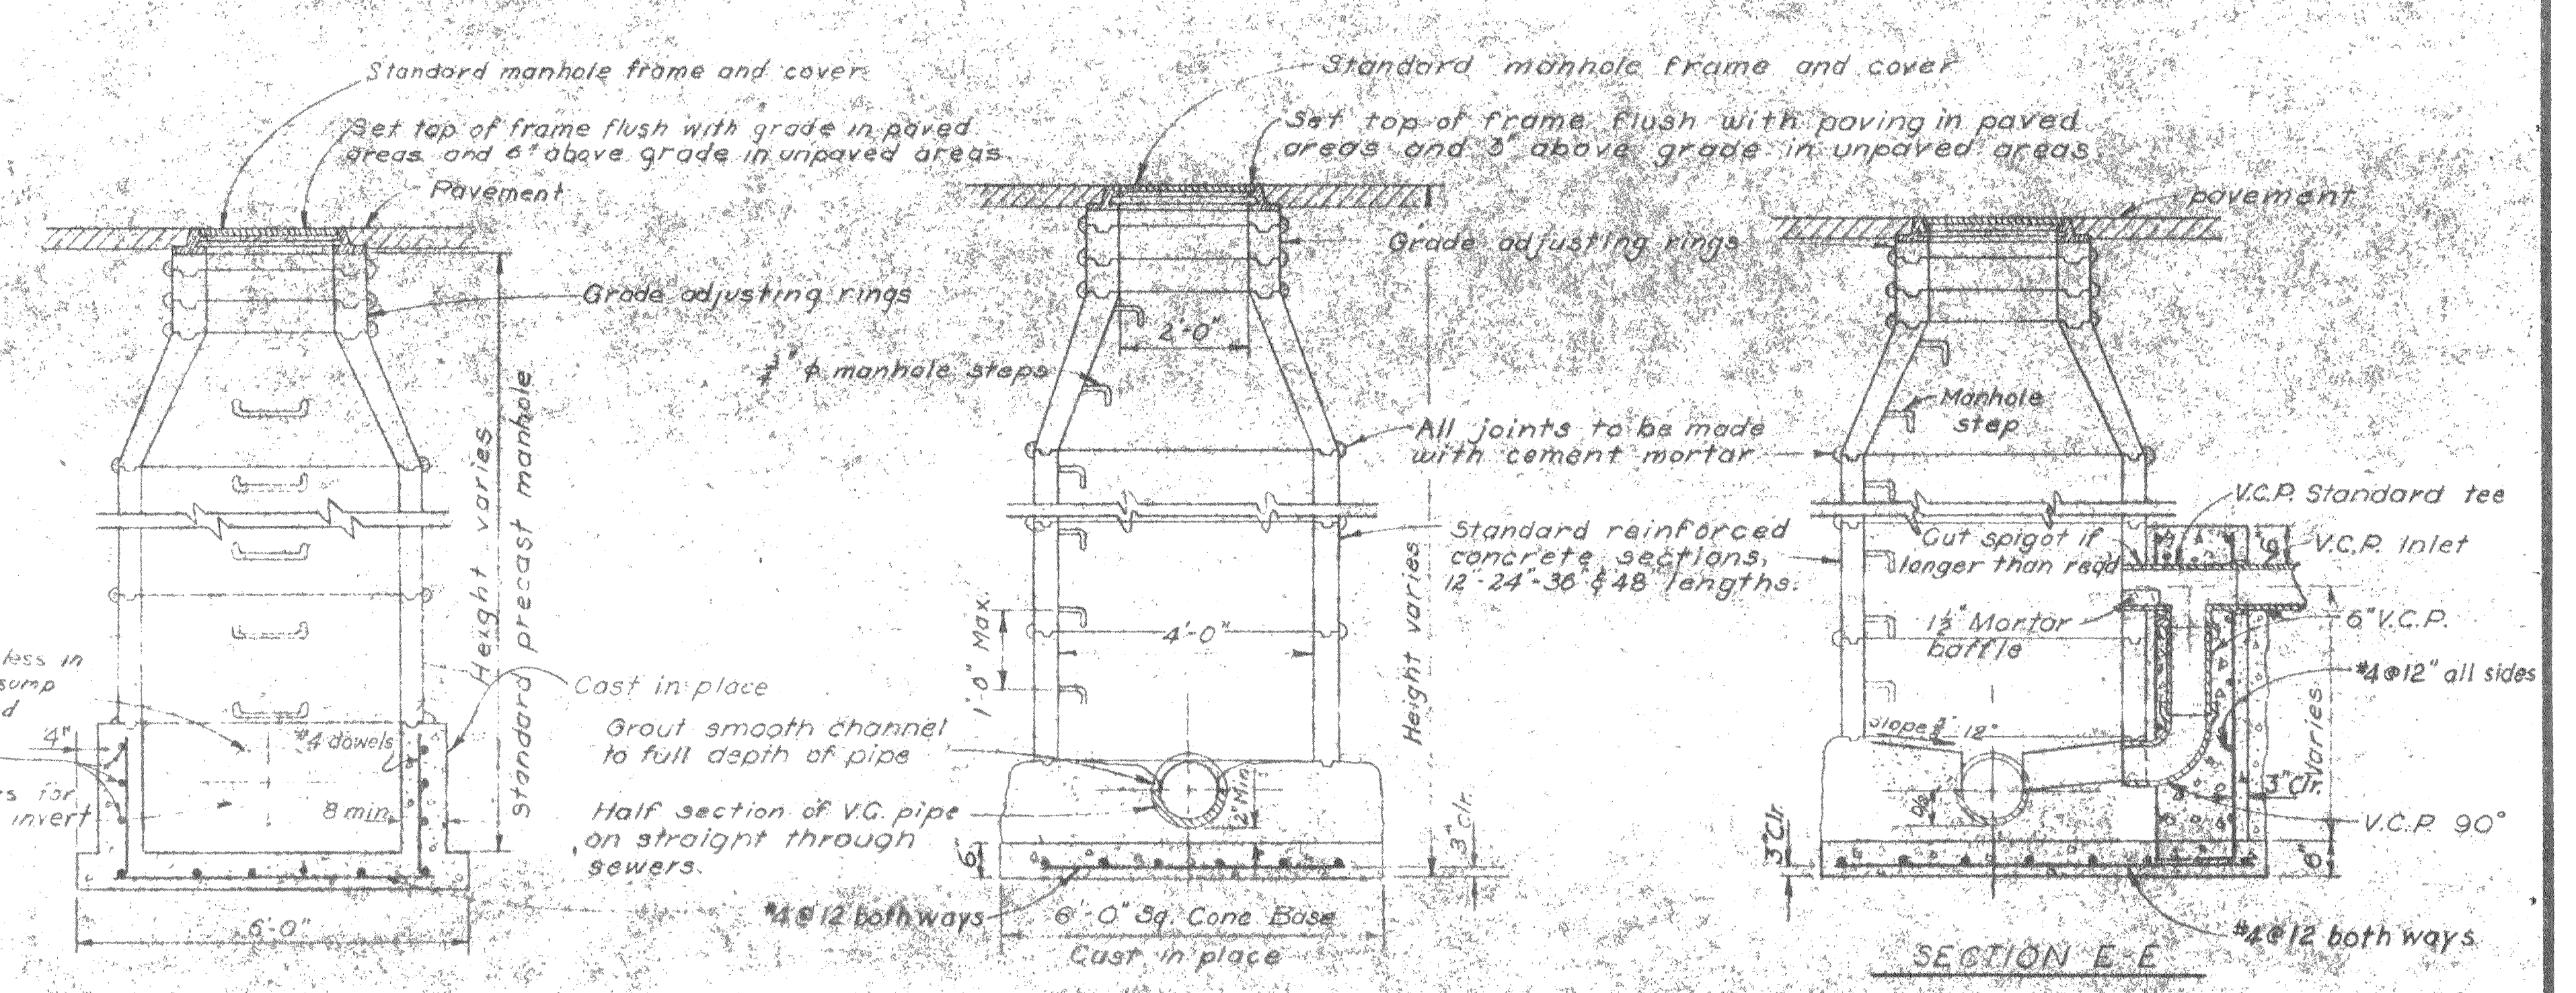 Standard manhole frame and cover
Set top of frame flush with grade in paved
areas and 6" above grade in unpaved areas.
Pavement
Grade adjusting rings
Height varies
standard precast manhole
less in
sump
d
4"
#4 dowels
s for
invert
8 min.
6'-0"
Cast in place
Standard manhole frame and cover
Set top of frame flush with paving in paved
areas and above grade in unpaved areas
Grade adjusting rings
2'-0"
3/4" ϕ manhole steps
All joints to be made
with cement mortar
Standard reinforced
concrete sections,
12"-24"-36" & 48" lengths.
Height varies
1'-0" Max.
4'-0"
Grout smooth channel
to full depth of pipe
Half section of V.C. pipe
on straight through
sewers.
2" Min.
6"
3" clr.
#4 @ 12 both ways
6'-0" Sq. Conc Base
Cast in place
pavement
Manhole
step
V.C.P. Standard tee
Cut spigot if
longer than req'd
6"
V.C.P. Inlet
1½" Mortar
baffle
6" V.C.P.
#4 @ 12" all sides
Slope 12"
Varies
3" Clr.
3" Clr.
V.C.P. 90°
6"
#4 @ 12 both ways
SECTION E-E